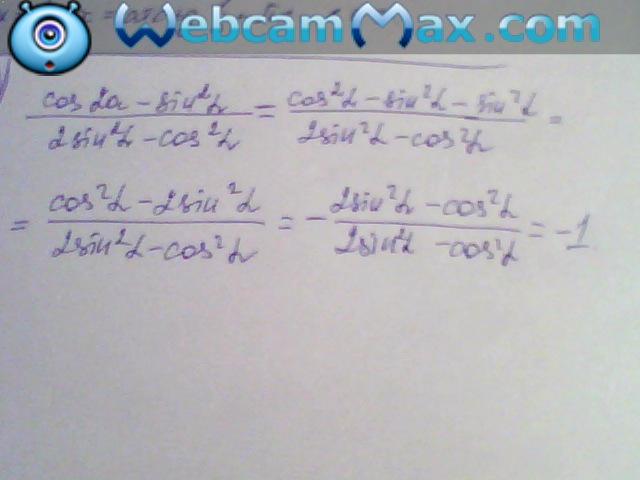 WebcamMax.com
cos 2α - sin²α / 2sin²α - cos²α = cos²α - sin²α - sin²α / 2sin²α - cos²α =
= cos²α - 2sin²α / 2sin²α - cos²α = - 2sin²α - cos²α / 2sin²α - cos²α = -1